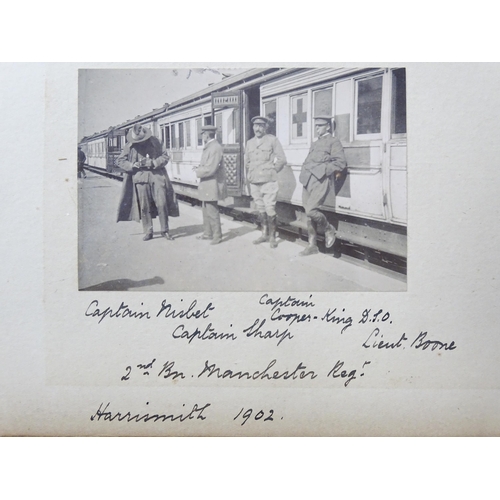 Captain Nisbet
Captain Sharp
Captain
Cooper-King D.S.O.
Lieut. Boone
2nd Bn. Manchester Regt.
Harrismith 1902.